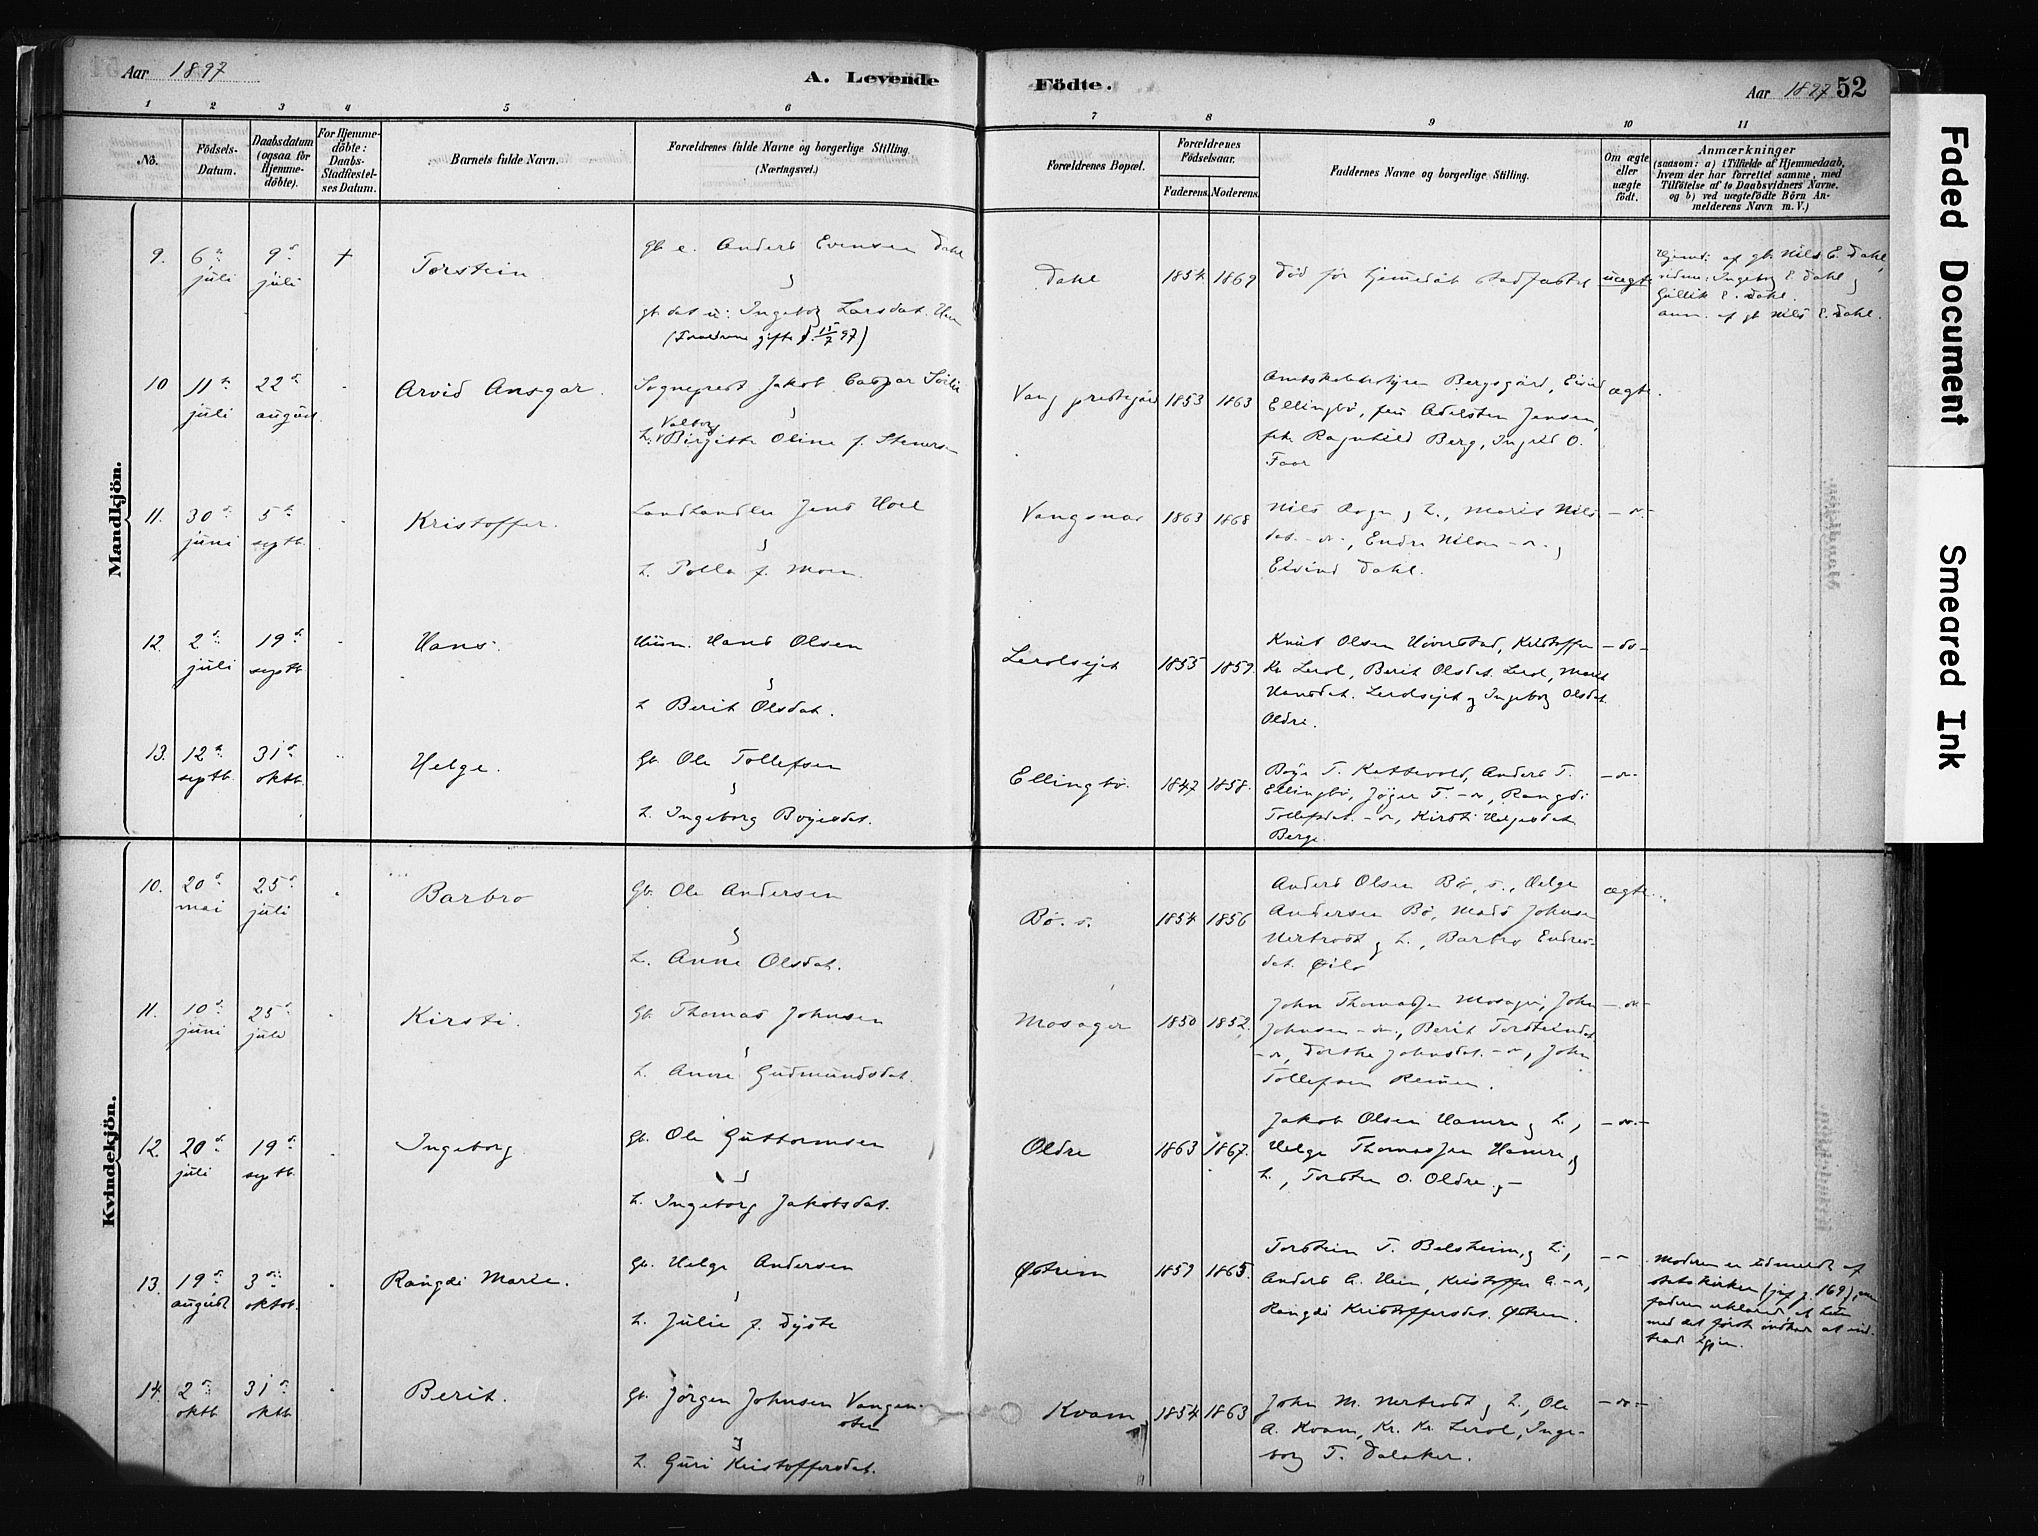 Aar 1897
A. Levende
Födte.
Aar 1897
52
1 2 3 4 5 6 7 8 9 10 11
No.
Födsels-Datum.
Daabsdatum (ogsaa for Hjemmedöbte).
For Hjemmedöbte: Daabs-Stadfæstelses Datum.
Barnets fulde Navn.
Forældrenes fulde Navne og borgerlige Stilling. (Næringsvei.)
Forældrenes Bopæl.
Forældrenes Födselsaar.
Faderens. Moderens.
Faddernes Navne og borgerlige Stilling.
Om ægte eller uægte födt.
Anmærkninger
(saasom: a) i Tilfælde af Hjemmedaab, hvem der har forrettet samme, med Tilföielse af to Daabsvidners Navne, og b) ved uægtefödte Börn Anmelderens Navn m. V.)
Mandkjön.
9. 6 juli 9 juli + Torstein
gb. e. Anders Evensen Dahl
gb. dat. u: Ingeborg Larsdat.
(Forældrene gifte 15/7 97)
Dahl 1854 1869
Död før hjemmedåb stadfæstet uægte
Hjemd: af gb. Nils E. Dahl,
vidner: Ingeborg E. Dahl
Gullik E. Dahl.
anm. af gb Nils E. Dahl.
10 11 juli 22 august Arvid Ansgar.
Sogneprest Jakob Caspar
h. Valborg Birgitte Oline f. Stenersen
Vang prestegård 1853 1863
Bergsgård, Eivind
Ellingbö, fru Adelsten Jensen,
frk. Ragnhild Berg, Ingrid O.
ægte.
11. 30 juni 5 septb. Kristoffer.
Landhandler Jens Hoel
h. Polla f. Moen.
Vangsnes 1863 1868
Nils Rogn og h., Marit Nils
dat. - do -, Endre Nilsen - do -
Eivind Dahl.
- do -
12. 2 juli 19 septb Hans.
Husm. Hans Olsen
h Berit Olsdat.
Lerolsejet 1855 1859.
Knut Olsen, Kristoffer
Kr. Lerol, Berit Olsdat. Lerol, Marit
Hansdat. Lerolsejet og Ingeborg Olsdat
Oldre.
- do -
13. 12 septb. 31 oktb. Helge.
Gb. Ole Tollefsen
h. Ingeborg Boyesdat.
Ellingbö. 1847 1858.
Boye T. Kattevold, Anders T.
Ellingbö, T. - do -, Rangdi
Tollefsdat. - do -, Kirsti Helgesdat
Berge.
- do -
Kvindekjön.
10. 20 mai 25 juli Barbro
Gb. Ole Andersen
h. Anne Olsdat.
Bö. s. 1854 1856
Anders Olsen Bö, s., Helge
Andersen Bö, Mads Johnsen
og h., Barbro Endres-
dat. Öilo
ægte.
11. 10 juni 25 juli Kirsti.
Gb. Thomas Johnsen
h. Anne Gudmundsdat.
Mosager 1850 1852.
John Thomassen Mosager, John
Johnsen - do -, Berit Torsteinsdat
- do -, Dorthe Johnsdat. - do -, John
Tollefsen
- do -
12. 20 juli 19 septb. Ingeborg
Gb. Ole Guttormsen
h. Ingeborg Jakobsdat.
Oldre 1863 1867.
Jakob Olsen Hamre og h.,
Helge Thomassen Hamre og
h., Torsten O. Oldre
- do -
13. 19 august 3 oktob. Rangdi Marie.
Gb. Helge Andersen
h. Julie f. Dyste
Østrem 1859 1865.
Torstein T. Belsheim, og h.,
Anders A. Hem, Kristoffer A. - do -,
Rangdi Kristoffersdat. Østrem.
- do -
Moderen er udmeldt af
statskirken
14. 2 oktb. 31 oktb Berit.
Gb. Jörgen Johnsen
h. Guri Kristoffersdat.
Kvam, 1854 1863
John M. og h., Ole
A. Kvam, Kr. Kr. Lerol, Inge-
borg T. Dalaker.
- do -
Faded Document
Smeared Ink